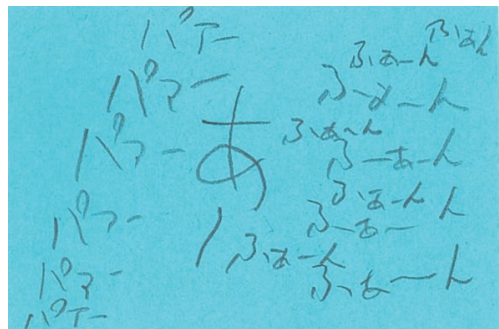 パァー
パァー
パァー
パァー
パァー
パァー
あ
ー
ふぁん
ふぁーん
ふーぁーん
ふぁーん
ふーぁーん
ふぁーん
ふーぁーん
ふぁーん
ふぁーん